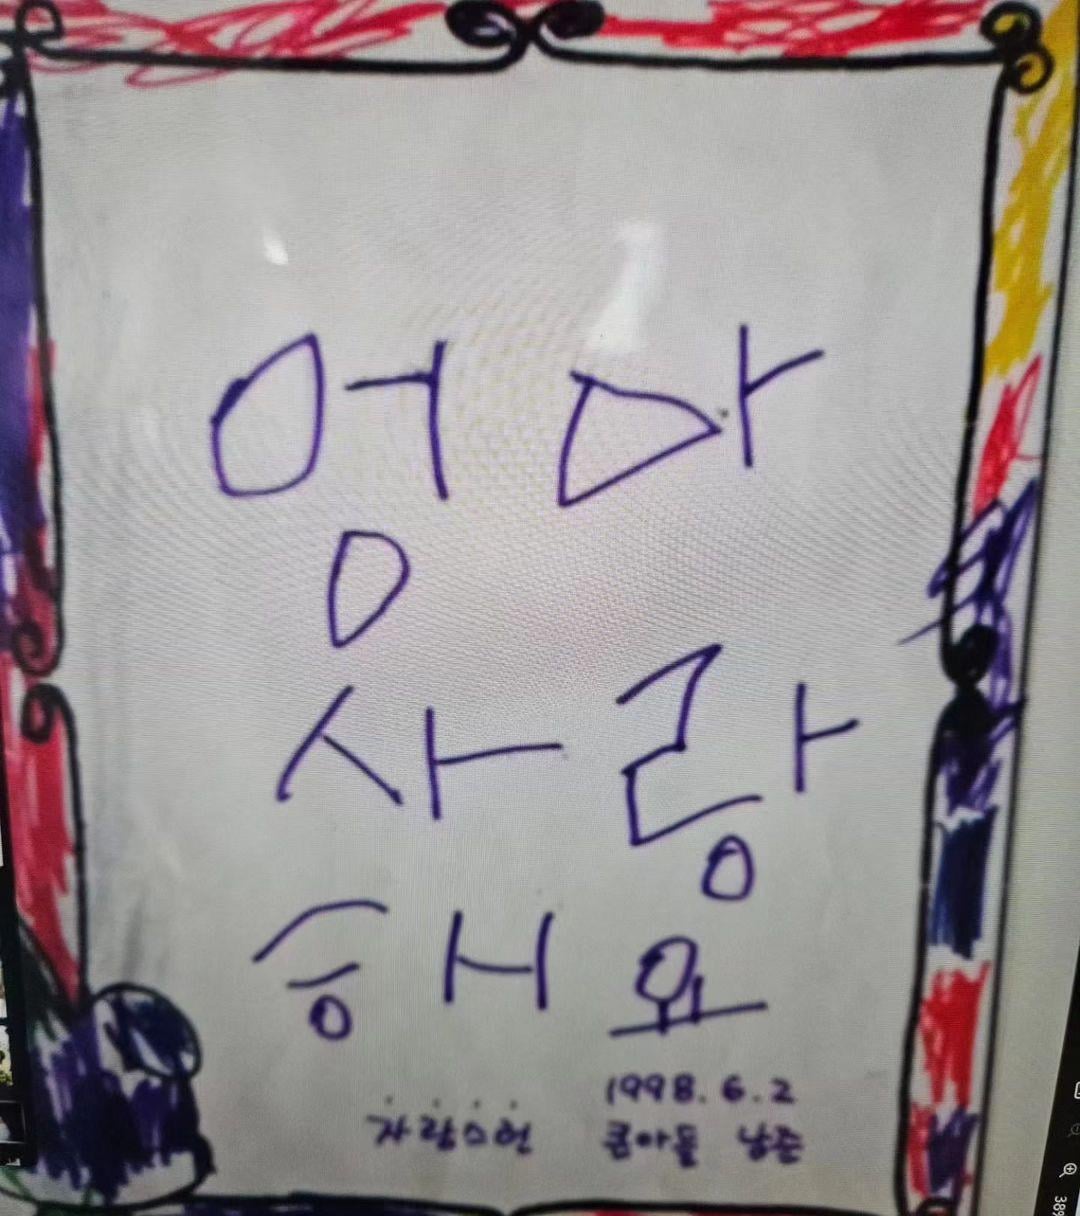 엄마
사랑
해요
1998. 6. 2
자랑스런 큰아들 남준